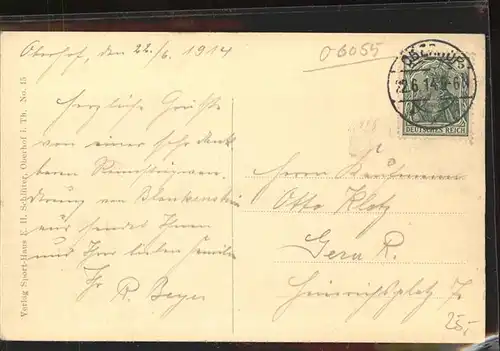 Oberhof, den 22./6. 1914
06055
OBERHOF
22.6.14. 5-6N
DEUTSCHES REICH
Herzliche Grüße
von einer sehr dank-
baren Rennsteigwan-
derung von Blankenstein
aus sendet Ihnen
und Ihrer lieben Familie
Ihr
R. Beyer
Herrn Kaufmann
Otto Klotz
Gera R.
Heinrichsplatz 7
25,-
Verlag Sport-Haus E. H. Schlüter, Oberhof i. Th. No. 15